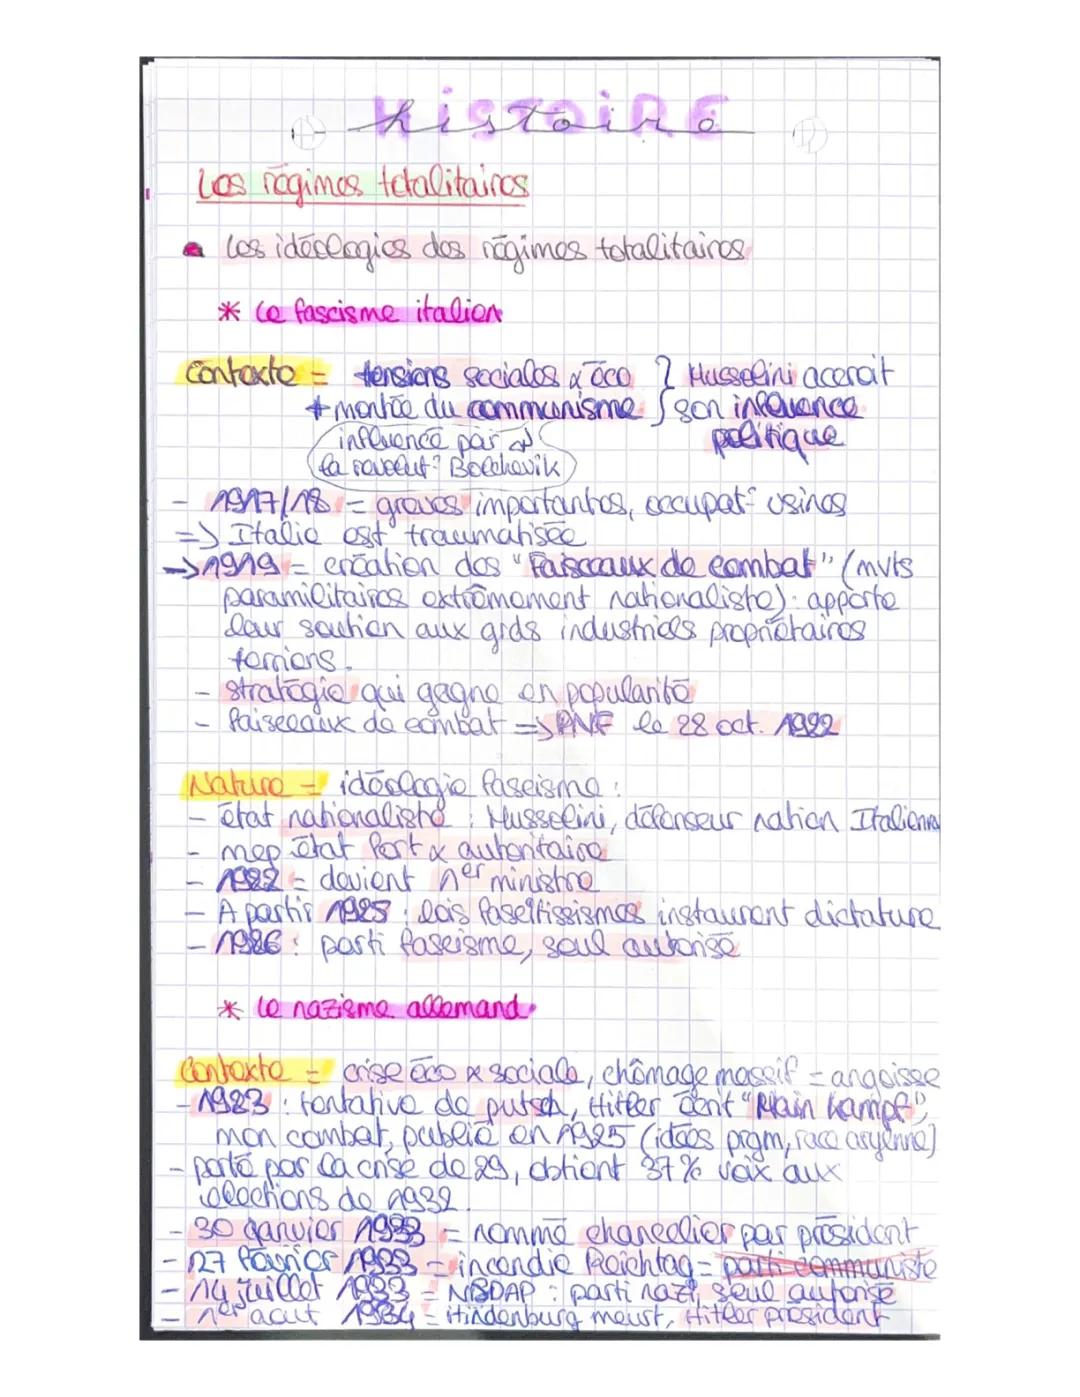 histoire
Les régimes totalitaires
Les idéologies des régimes totalitaires
* Le fascisme italien
Contexte = tensions sociales & éco } Mussolini accroit
+ montée du communisme } son influence
influencé par politique
la révolut° Bolchévik
- 1917/18 = graves importantes, occupat° usines
=> Italie est traumatisée
-> 1919 = création des "Faisceaux de combat" (mvts
paramilitaires extrêmement nationaliste) : apporte
leur soutien aux grds industriels propriétaires
terriens.
- stratégie qui gagne en popularité
- faisceaux de combat => PNF le 28 oct. 1922
Nature = idéologie fascisme :
- état nationaliste : Mussolini, défenseur nation Italienne
- mep état fort & autoritaire
- 1922 = devient 1er ministre
- A partir 1925 : lois instaurent dictature
- 1926 : parti fascisme, seul autorisé
* Le nazisme allemand
Contexte = crise éco & sociale, chômage massif = angoisse
- 1923 : tentative de putsch, Hitler écrit "Mein Kampf",
mon combat, publié en 1925 (idées prgm, race aryenne)
- porté par la crise de 29, obtient 37% voix aux
élections de 1932.
- 30 janvier 1933 = nommé chancelier par président
- 27 février 1933 = incendie Reichtag = parti communiste
- 14 juillet 1933 = NSDAP : parti nazi, seul autorisé
- 1er aout 1934 = Hindenburg meurt, Hitler président